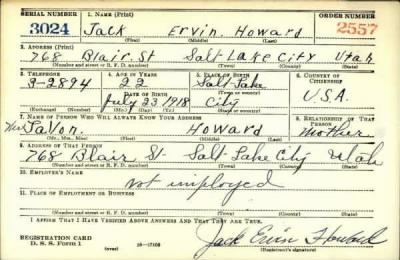 SERIAL NUMBER 1. NAME (Print) ORDER NUMBER
3024 Jack Ervin Howard 2557
(First) (Middle) (Last)
2. ADDRESS (Print)
768 Blair St Salt Lake City Utah
(Number and street or R. F. D. number) (Town) (County) (State)
3. TELEPHONE 4. AGE IN YEARS 5. PLACE OF BIRTH 6. COUNTRY OF CITIZENSHIP
3-2894 22 Salt Lake
DATE OF BIRTH
July 23 1918 City U.S.A.
(Exchange) (Number) (Mo.) (Day) (Yr.) (State or country)
7. NAME OF PERSON WHO WILL ALWAYS KNOW YOUR ADDRESS 8. RELATIONSHIP OF THAT PERSON
Mrs LaVon. Howard Mother
(Mr., Mrs., Miss) (First) (Middle) (Last)
9. ADDRESS OF THAT PERSON
768 Blair St- Salt Lake City Utah
(Number and street or R. F. D. number) (Town) (County) (State)
10. EMPLOYER'S NAME
not imployed
11. PLACE OF EMPLOYMENT OR BUSINESS
(Number and street or R. F. D. number) (Town) (County) (State)
I AFFIRM THAT I HAVE VERIFIED ABOVE ANSWERS AND THAT THEY ARE TRUE.
REGISTRATION CARD
D. S. S. Form 1 (over) 16-17105 Jack Ervin Howard
(Registrant's signature)